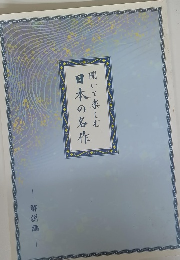 聞いて楽しむ
日本の名作
解説集